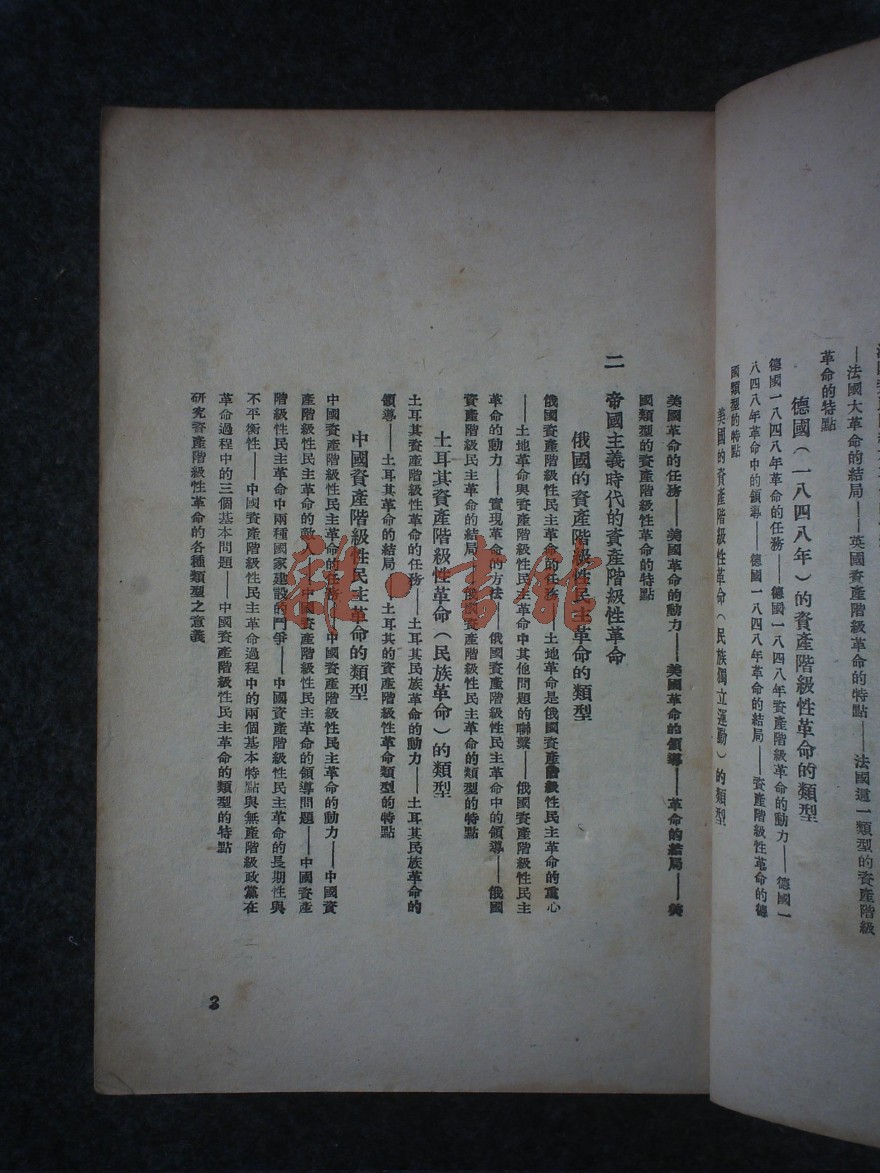 ——法國大革命的結局——英國資產階級革命的特點——法國這一類型的資產階級
革命的特點
德國(一八四八年)的資產階級性革命的類型
德國一八四八年革命的任務——德國一八四八年資產階級革命的動力——德國一
八四八年革命中的領導——德國一八四八年革命的結局——資產階級性革命的德
國類型的特點
美國的資產階級性革命(民族獨立運動)的類型
美國革命的任務——美國革命的動力——美國革命的領導——革命的結局——美
國類型的資產階級性革命的特點
二 帝國主義時代的資產階級性革命
俄國的資產階級性民主革命的類型
俄國資產階級性民主革命的任務——土地革命是俄國資產階級性民主革命的重心
——土地革命與資產階級性民主革命中其他問題的聯繫——俄國資產階級性民主
革命的動力——實現革命的方法——俄國資產階級性民主革命中的領導——俄國
資產階級性民主革命的結局——俄國資產階級性民主革命的類型的特點
土耳其資產階級性革命(民族革命)的類型
土耳其資產階級性革命的任務——土耳其民族革命的動力——土耳其民族革命的
領導——土耳其革命的結局——土耳其的資產階級性革命類型的特點
中國資產階級性民主革命的類型
中國資產階級性民主革命的任務——中國資產階級性民主革命的動力——中國資
產階級性民主革命的敵人——中國資產階級性民主革命的領導問題——中國資產
階級性民主革命中兩種國家建設的鬥爭——中國資產階級性民主革命的長期性與
不平衡性——中國資產階級性民主革命過程中的兩個基本特點與無產階級政黨在
革命過程中的三個基本問題——中國資產階級性民主革命的類型的特點
研究資產階級性革命的各種類型之意義
3
雜·書館